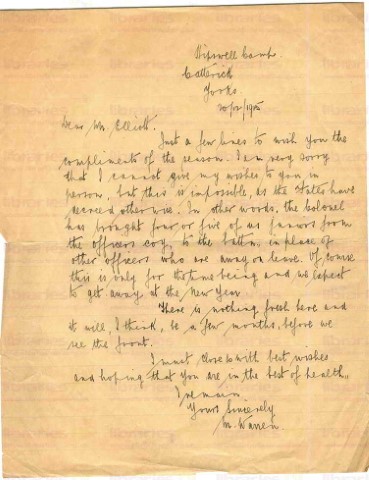 Hipswell Camp
Catterick
Yorks.
20/12/1915
Dear Mr. Elliott.
Just a few lines to wish you the
compliments of the season. I am very sorry
that I cannot give my wishes to you in
person, but this is impossible, as the states have
decreed otherwise. In other words, the Colonel
has brought four or five of us juniors from
the officers coy, to the battn, in place of
other officers who are away on leave. Of course
this is only for the time being and we expect
to get away at the New Year
There is nothing fresh here and
it will, I think, be a few months, before we
see the front.
I must close with best wishes
and hoping that you are in the best of health,
I remain
Yours Sincerely
M. Warren.